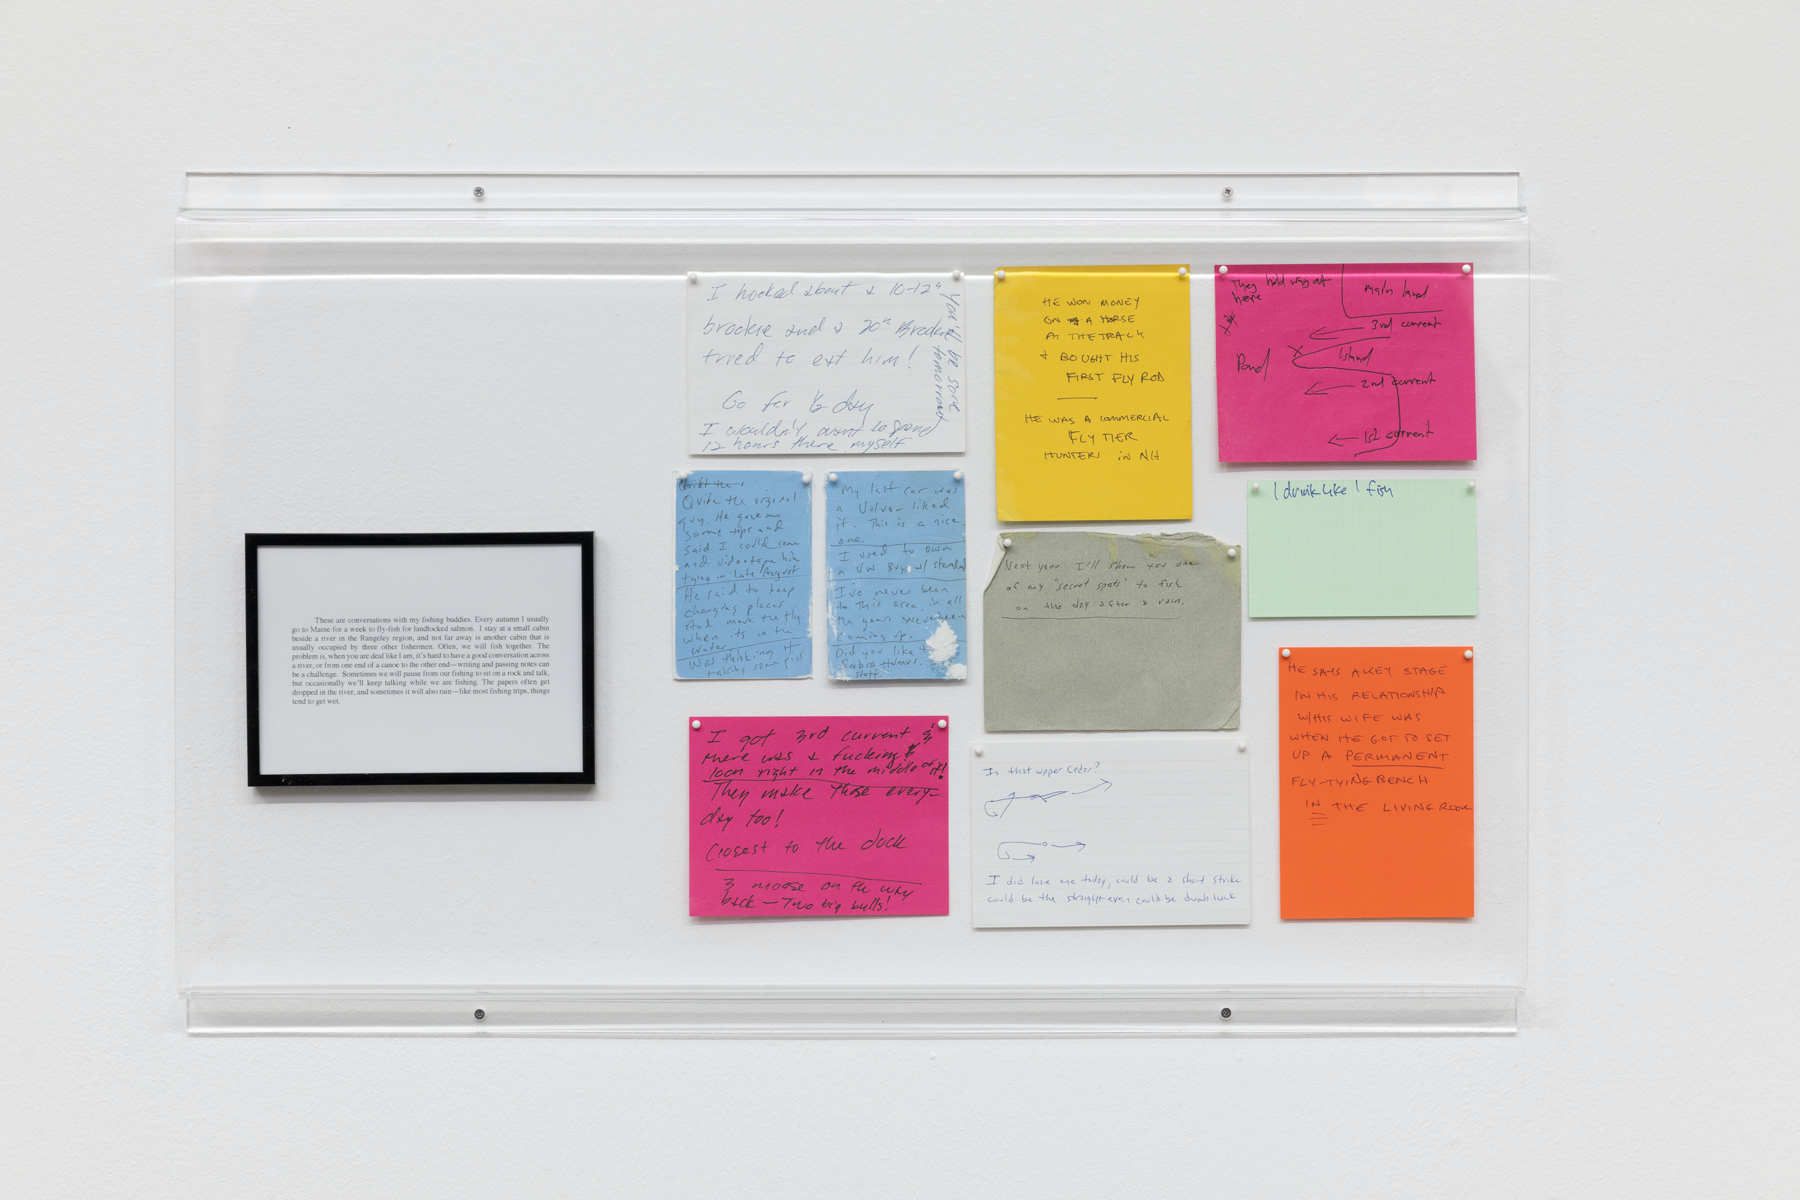 These are conversations with my fishing buddies. Every autumn I usually
go to Maine for a week to fly-fish for landlocked salmon. I stay at a small cabin
beside a river in the Rangeley region, and not far away is another cabin that is
usually occupied by three other fishermen. Often, we will fish together. The
problem is, when you are deaf like I am, it's hard to have a good conversation across
a river, or from one end of a canoe to the other end—writing and passing notes can
be a challenge. Sometimes we will pause from our fishing to sit on a rock and talk,
but occasionally we'll keep talking while we are fishing. The papers often get
dropped in the river, and sometimes it will also rain—like most fishing trips, things
tend to get wet.
I hooked about a 10-12"
brookie and a 20" Brookie
tried to eat him!
Go for ½ day
I wouldn't want to spend
12 hours there myself
You'll be sore
tomorrow
HE WON MONEY
ON A HORSE
AT THE TRACK
+ BOUGHT HIS
FIRST FLY ROD
HE WAS A COMMERCIAL
FLY TIER
HUNTER IN NH
They hold way at
here
main land
3rd current
Pond
Island
2nd current
1st current
Quite the original
guy. He gave me
some tips and
said I could come
and videotape him
tying in late August
He said to keep
changing places
and move the fly
when its in the
water.
Was thinking of
taking some
My last car was
a Volvo - liked
it. This is a nice
one.
I used to own
a VW Bug w/ standard
I've never been
to this area in all
the years
coming up.
Did you like
Sabra Humus.
stuff.
Next year I'll show you one
of my "secret spots" to fish
on the day after a rain.
I drink like 1 fish
I got 3rd current &
there was a fucking
loon right in the middle of it!
They make those every-
day too!
Closest to the dock
3 moose on the way
back — Two big bulls!
Is that upper Ceder?
I did lose one today, could be a short strike
could be the straight eye, could be dumb luck
HE SAYS A KEY STAGE
IN HIS RELATIONSHIP
W/HIS WIFE WAS
WHEN HE GOT TO SET
UP A PERMANENT
FLY-TYING BENCH
IN THE LIVING ROOM